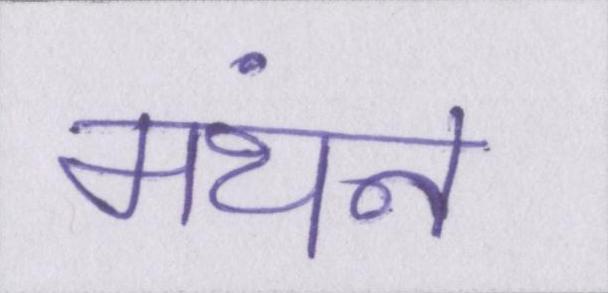 मंथन